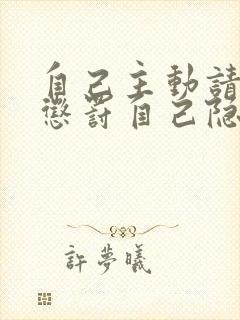 自己主動請
懲罰自己隐
許夢曦